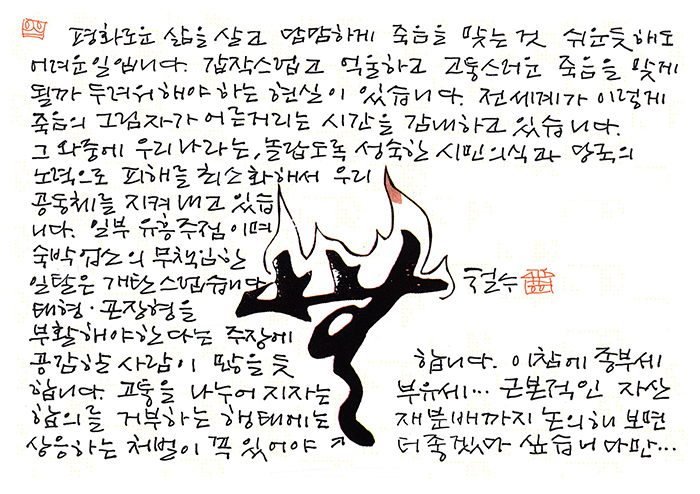 평화로운 삶을 살고 담담하게 죽음을 맞는 것 쉬운듯해도
어려운일입니다. 갑작스럽고 억울하고 고통스러운 죽음을 맞게
될까 두려워해야 하는 현실이 있습니다. 전세계가 이렇게
죽음의 그림자가 어른거리는 시간을 감내하고 있습니다.
그 와중에 우리나라는, 놀랍도록 성숙한 시민의식과 당국의
노력으로 피해를 최소화해서 우리
공동체를 지켜 내고 있습
니다. 일부 유흥주점이며
숙박업소의 무책임한
일탈은 개탄스럽습니다
태형·곤장형을
부활해야한다는 주장에
공감할 사람이 많을 듯
합니다. 고통을 나누어 지자는
합의를 거부하는 행태에는
상응하는 처벌이 꼭 있어야 ↗
합니다. 이참에 종부세
부유세... 근본적인 자산
재분배까지 논의해 보면
더 좋겠다 싶습니다만...
철수